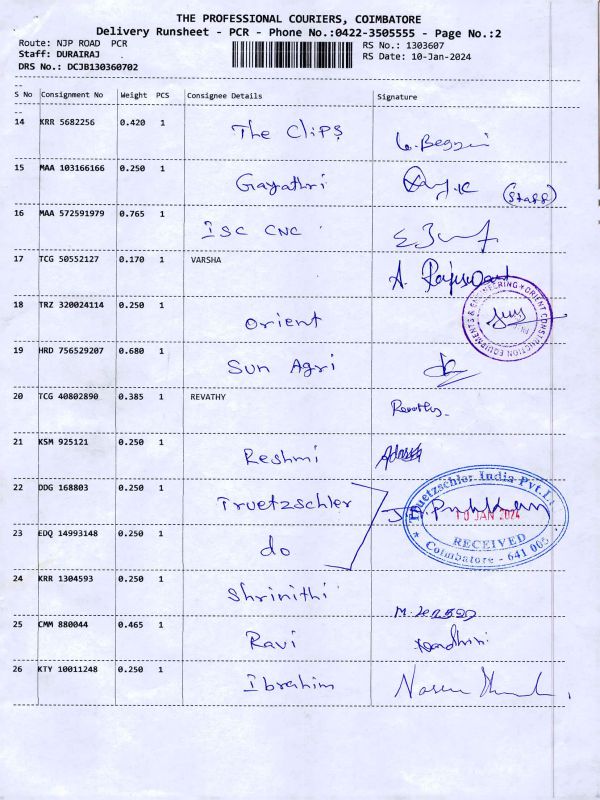 THE PROFESSIONAL COURIERS, COIMBATORE
Delivery Runsheet - PCR - Phone No.:0422-3505555 - Page No.:2
Route: NJP ROAD PCR
RS No.: 1303607
Staff: DURAIRAJ
RS Date: 10-Jan-2024
DRS No.: DCJB130360702
S No Consignment No Weight PCS Consignee Details Signature
14 KRR 5682256 0.420 1 The CliPS
15 MAA 103166166 0.250 1 Gayathri (Staff)
16 MAA 572591979 0.765 1 ISC CNC
17 TCG 50552127 0.170 1 VARSHA
18 TRZ 320024114 0.250 1 Orient
ORIENT CONSTRUCTION EQUIPMENTS & ENGINEERING
19 HRD 756529207 0.680 1 Sun Agri
20 TCG 40802890 0.385 1 REVATHY Revathy
21 KSM 925121 0.250 1 Reshmi
22 DDG 168803 0.250 1 Truetzschler
Truetzschler India Pvt.Lt
10 JAN 2024
RECEIVED
Coimbatore - 641 005
23 EDQ 14993148 0.250 1 do
24 KRR 1304593 0.250 1 Shrinithi
25 CMM 880044 0.465 1 Ravi
26 KTY 10011248 0.250 1 Ibrahim